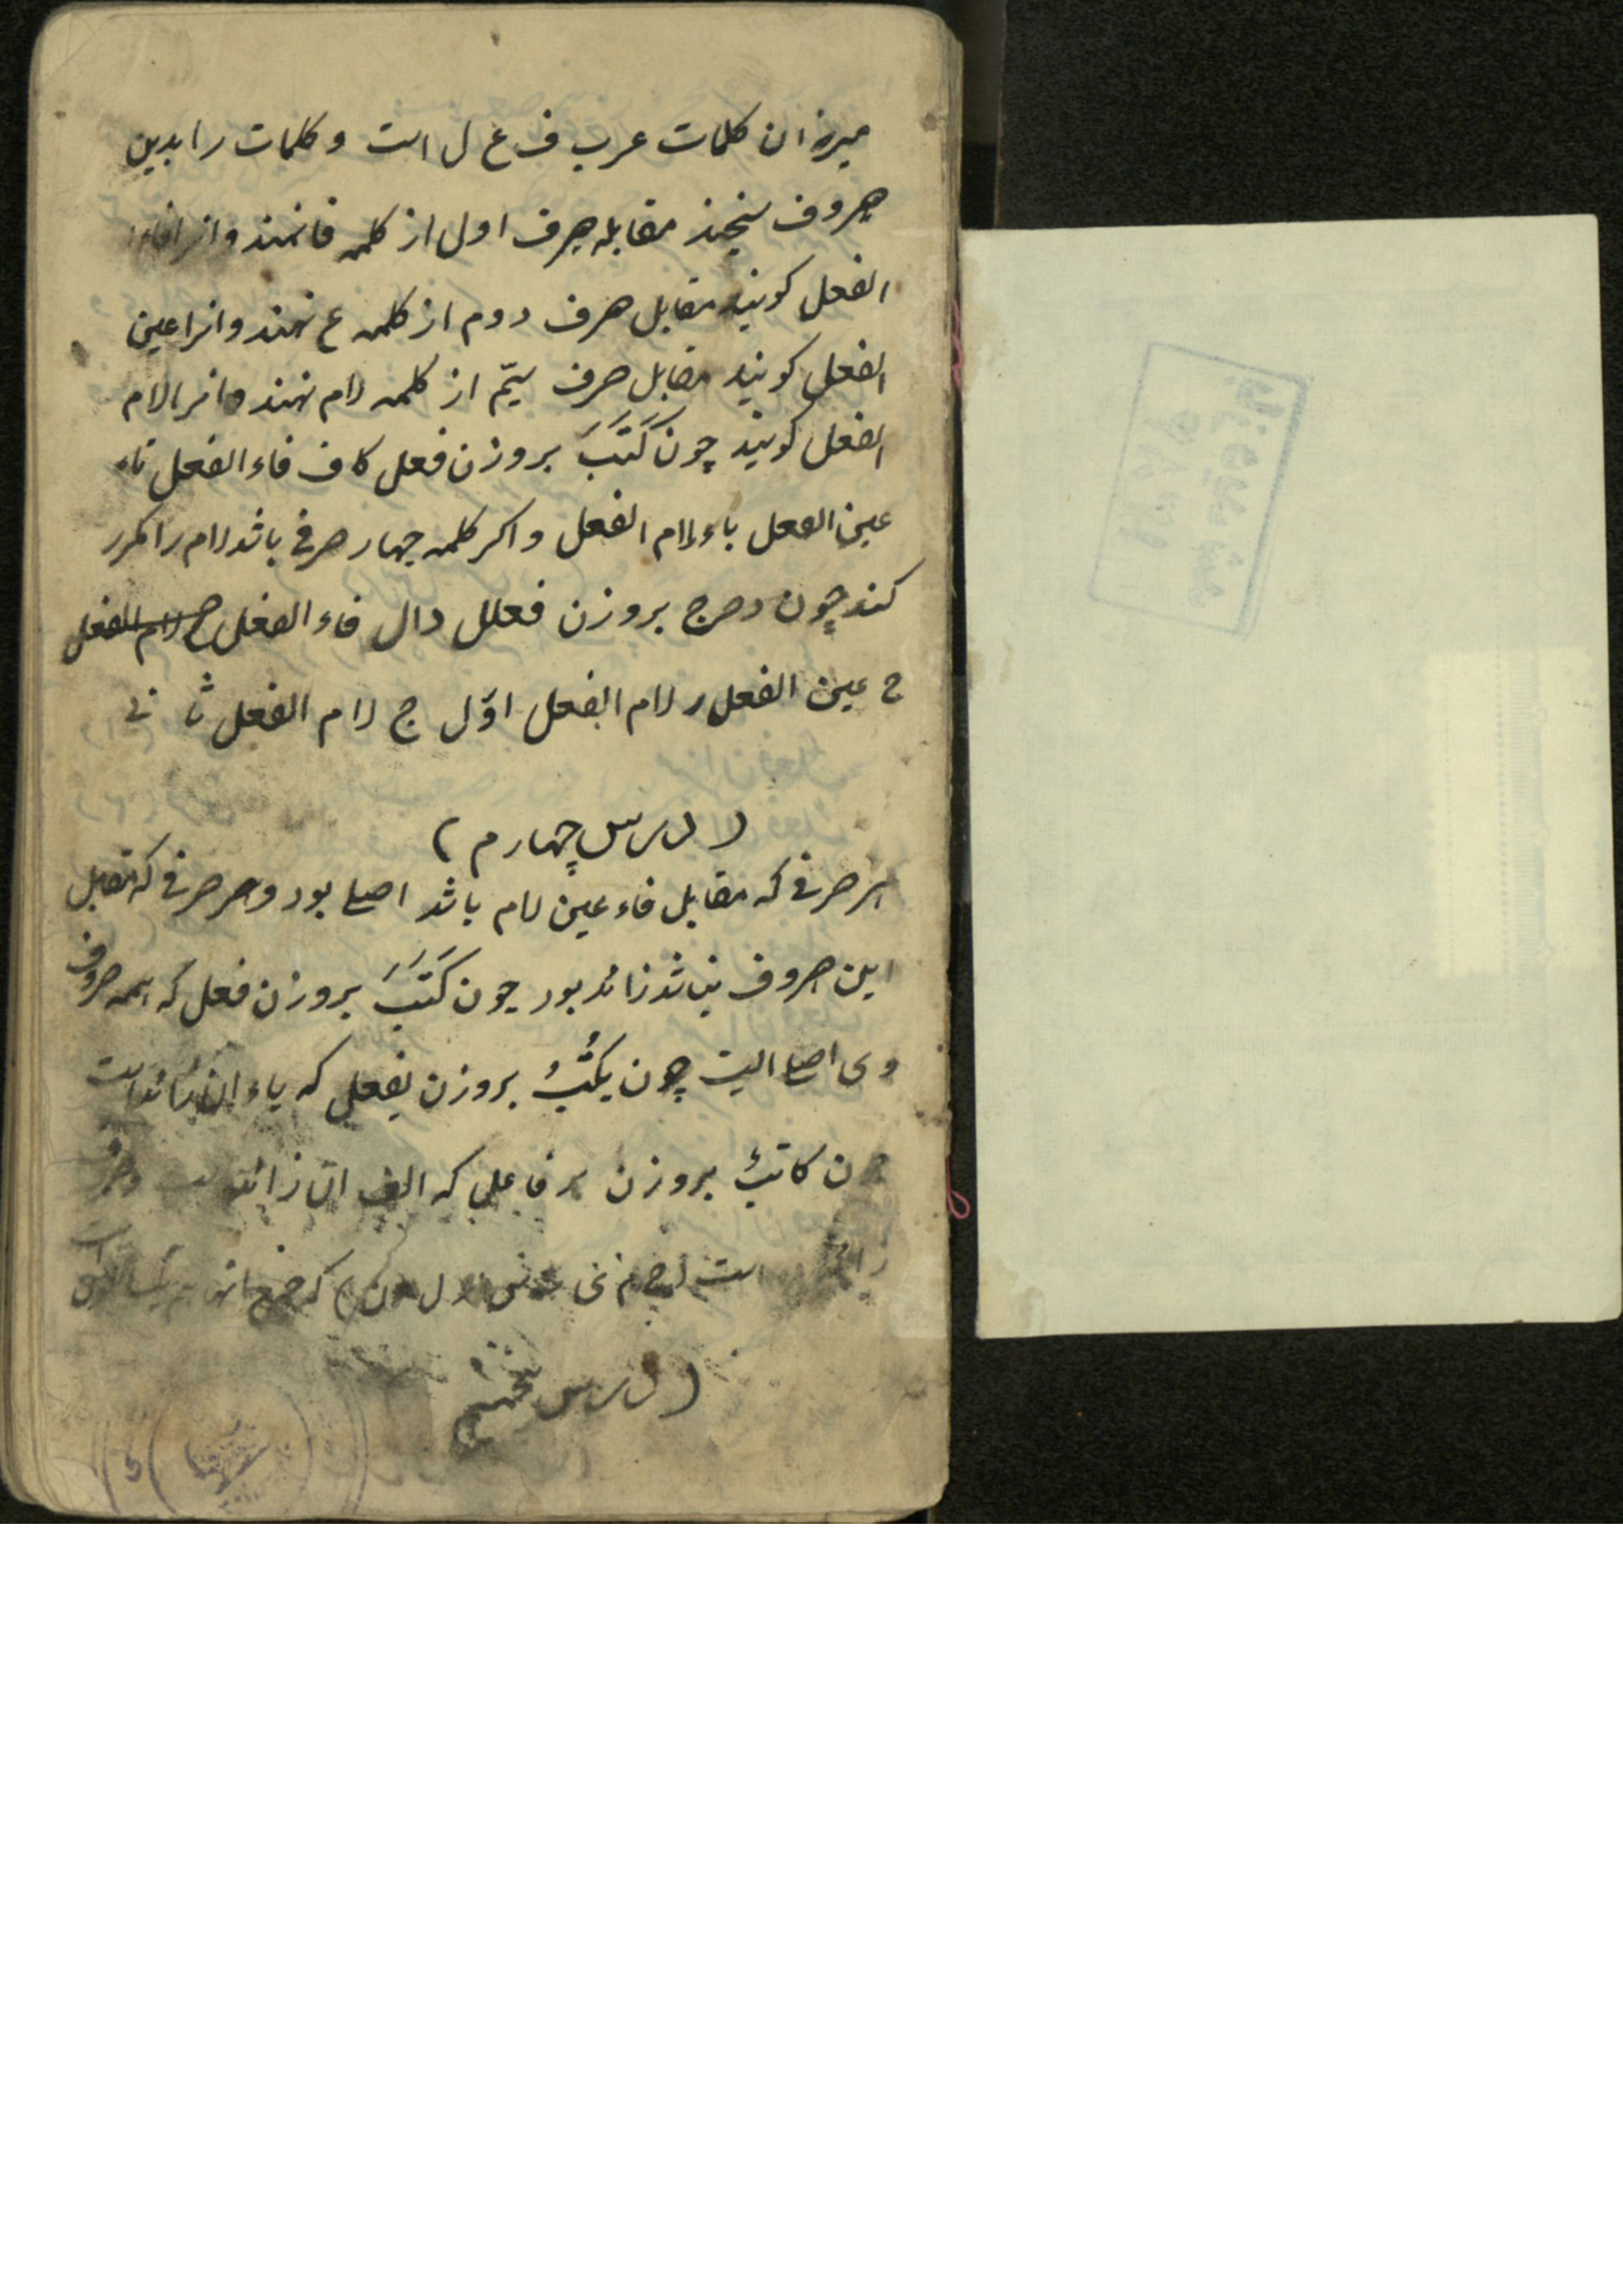 میزان کلمات عرب ف ع ل است و کلمات را بدین
حروف سنجند مقابله حرف اول از کلمه فا نهند و انرا فاء
الفعل کویند مقابل حرف دوم از کلمه ع نهند و انرا عین
الفعل کویند مقابل حرف سیّم از کلمه لام نهند و انرا لام
الفعل کویند چون کَتَبَ بروزن فعل کاف فاء الفعل تاء
عین الفعل باء لام الفعل و اکر کلمه چهار حرفی باشد لام را مکرر
کند چون دحرج بروزن فعلل دال فاء الفعل ح لام الفعل
ح عین الفعل ر لام الفعل اوّل ج لام الفعل ثانی
(درس چهارم)
هر حرفی که مقابل فاء عین لام باشد اصلی بود و هر حرفی که مقابل
این حروف نباشد زائد بود چون کَتَبَ بروزن فعل که همه حروف
وی اصلی است چون یکتُبُ بروزن یفعل که یاء ان زائد است
کاتبٌ بروزن بر فاعل که الف ان زائد
است
(درس پنجم